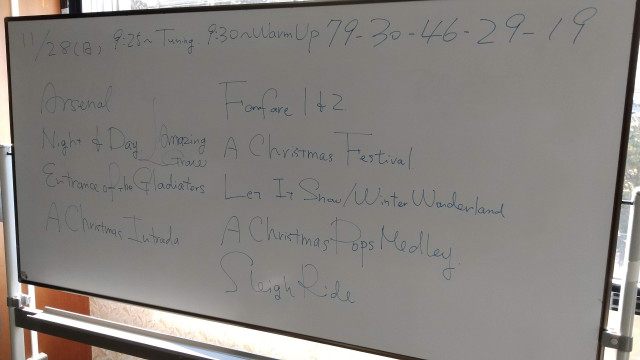 11/28(日) 9:25~Tuning. 9:30~WarmUp 79-30-46-29-19
Arsenal
Night & Day
Amazing
Grace
Entrance of the Gladiators
A Christmas Intrada
Fanfare 1&2
A Christmas Festival
Let It Snow/Winter Wonderland
A Christmas Pops Medley
Sleigh Ride